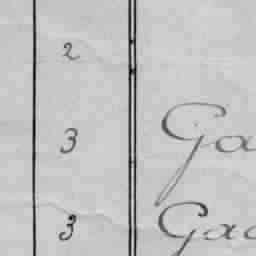 2
3 Ga
3 Gad